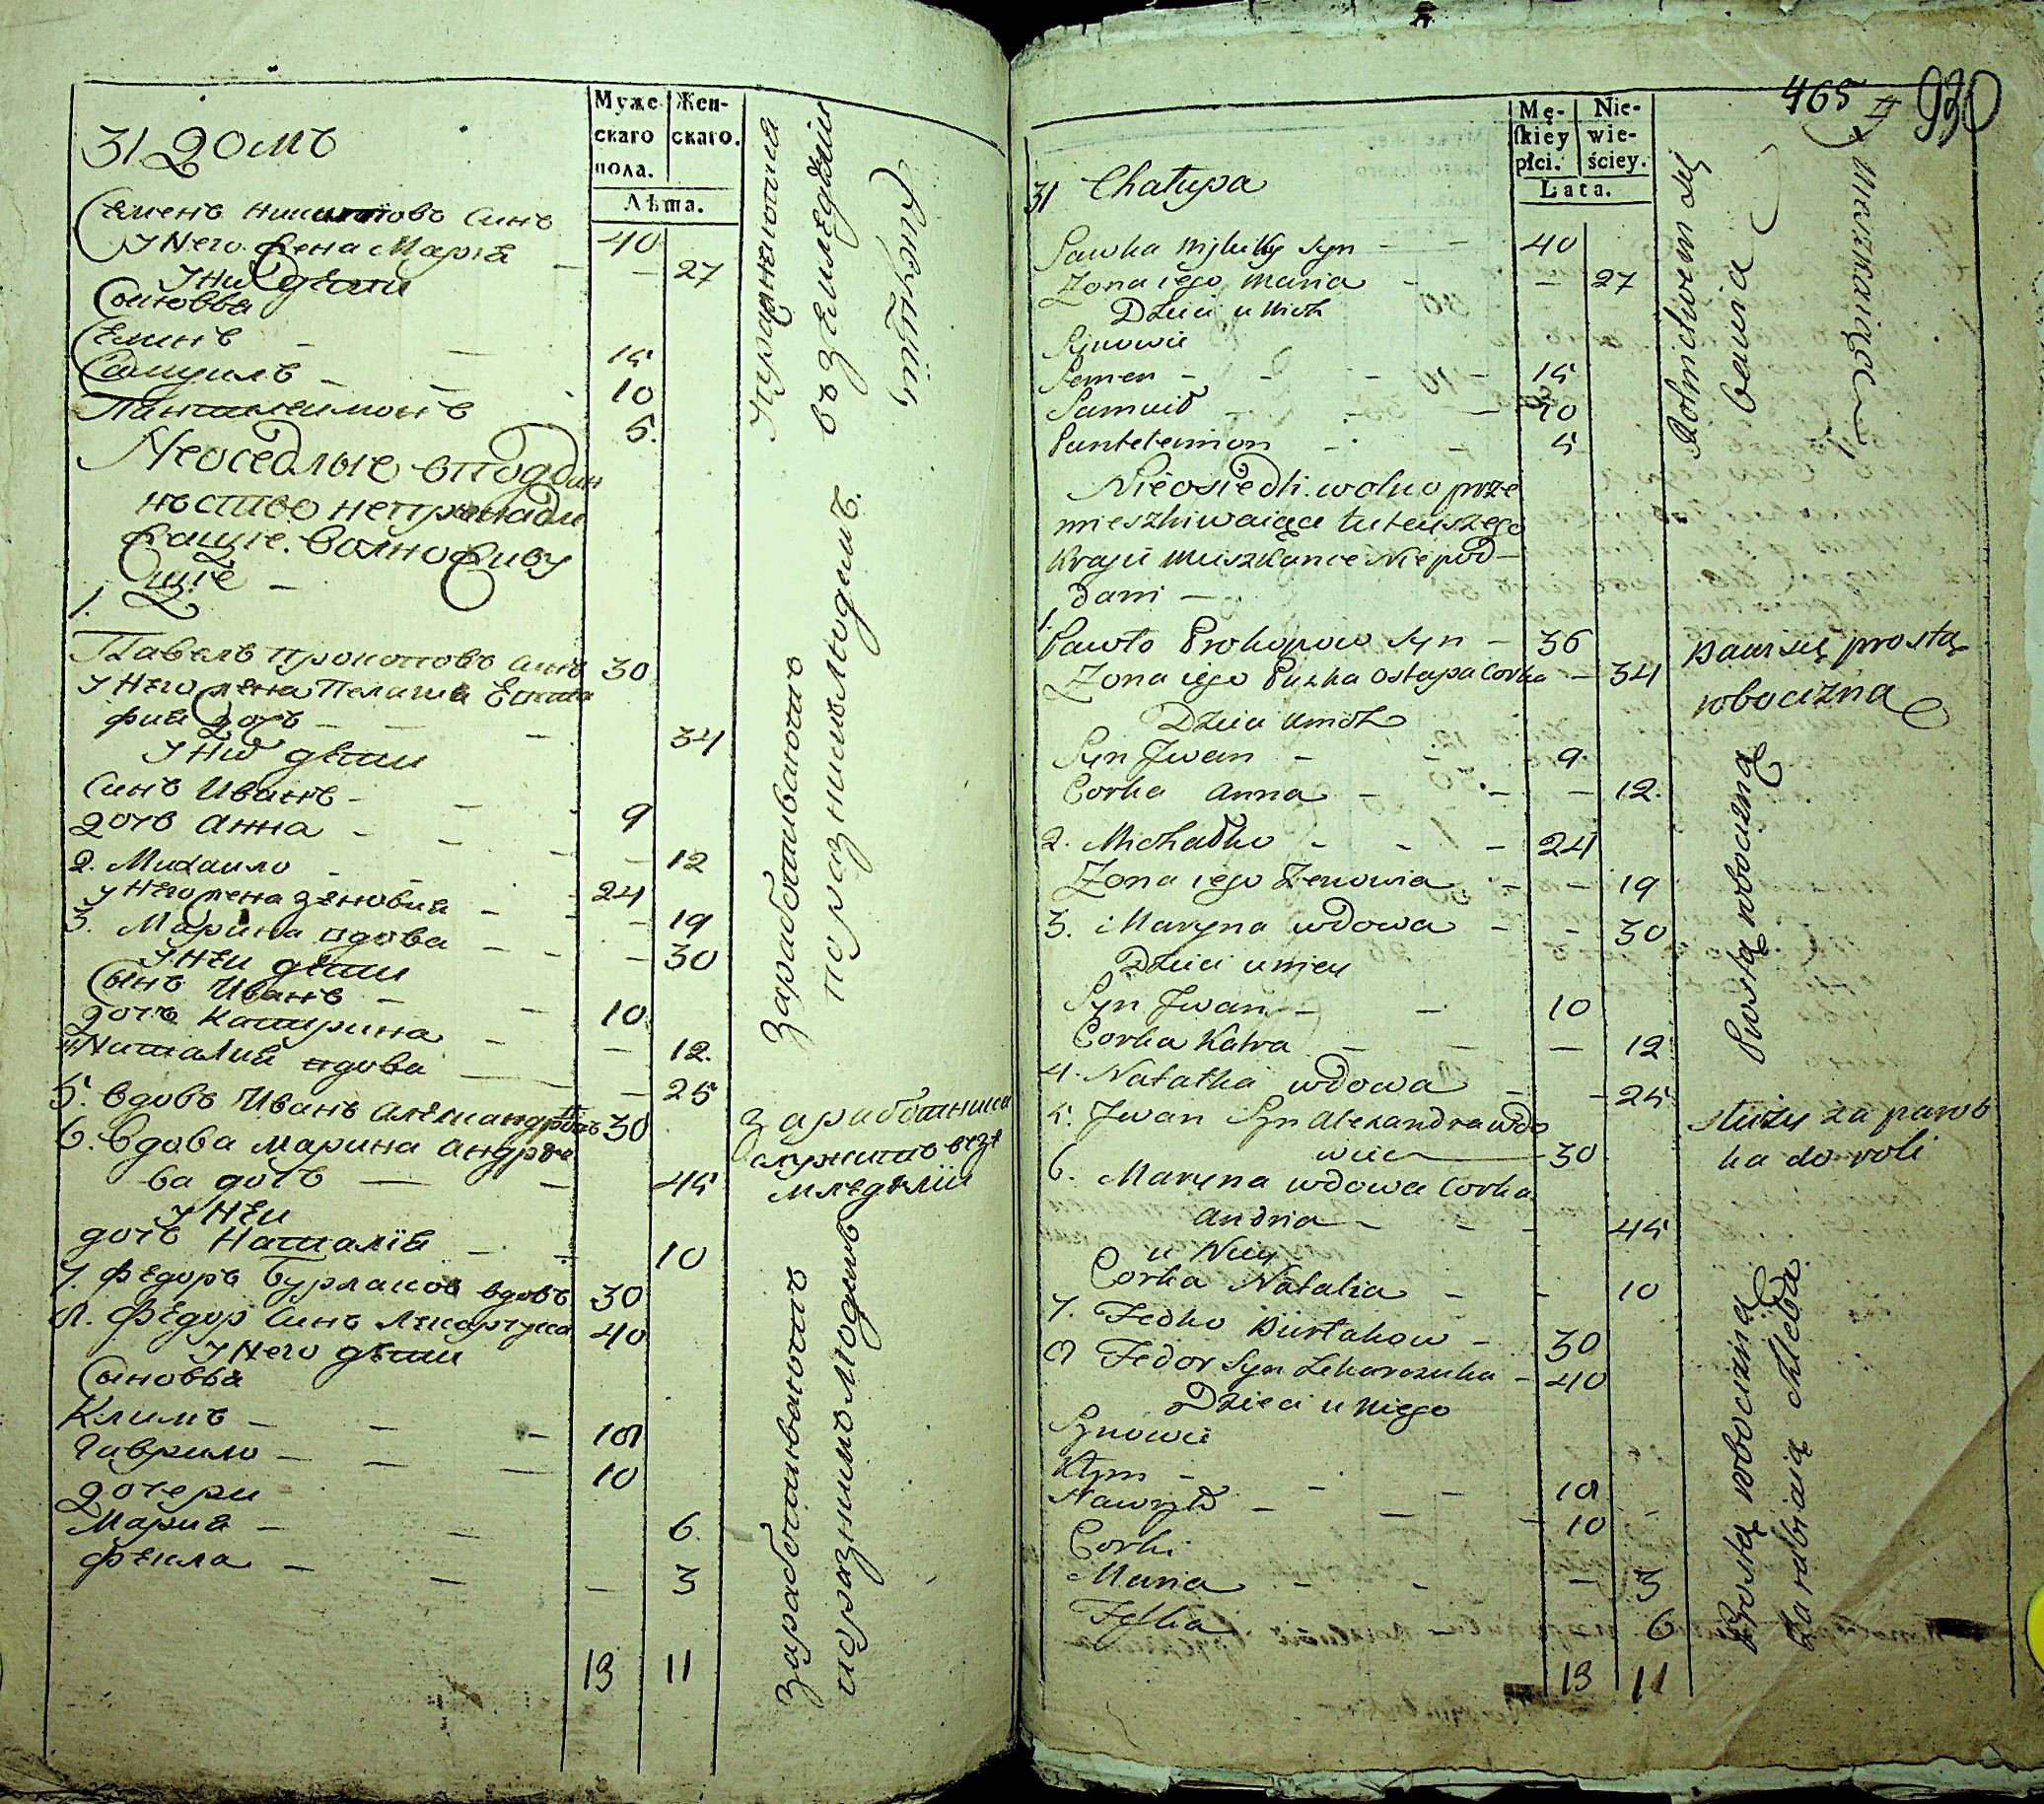 Муже
скаго
пола.
Жен-
скаго.
Лѣта.
31 Домъ
Семенъ синъ 40
У Него Жена Марія — — 27
У Них дѣти
Сыновья
Семинъ — — 15
Самуилъ — — 10
Пантелеимонъ 5.
Неоседлые вподдан
нъство непринадле
жащіе. волноживу
щіе —
1.
Павелъ Прокоповъ синъ 30
У Него жена Пелагия Евста
фия дочъ — — — 34
У Них дѣти
Синъ Иванъ — — 9
Дочъ Анна — — — 12
2. Михаило — — 24
У Него жена Зеновия — — 19
3. Марина вдова — — 30
У Неи дѣти
Сынъ Иванъ — — 10
Дочъ Катерина — — 12.
4. Наталия вдова — — 25
5. вдовъ Иванъ Александровъ 30
6. Вдова Марина Андрѣе
ва дочъ — — 45
У Неи
дочъ Наталія — — 10
7. Федоръ Бурлаковъ вдовъ 30
8. Федор Синъ Лекарчука 40
У Него дѣти
Сыновья
Климъ — — — 18
Гаврило — — — 10
Дочери
Мария — — 6.
Фекла — — — 3
13 11
Упражняются
въ Земледѣліи
зарабативаютъ
по разнимъ людимъ.
заработника
служитъ в зе
мледѣліи
зарабативаютъ
по разнимъ людимъ
465
930
Mę-
ſkiey
płci.
Nie-
wie-
ściey.
Lata.
31 Chałupa
Sawka syn — — 40
Zona iego Maria — — 27
Dzieci u nich
Synowie
Semen — — — 15
Samuił — — — 10
Pantelemion — — 5
Nieosiedli. wolno prze
mieszkiwaiące tuteyszego
kraju mieszkance Niepod-
dani —
1. Pawło Prokopow syn — 36
Zona iego Pazka Ostapa Corka — 34
Dzieci u nich
Syn Jwan — — 9.
Corka Anna — — — 12.
2. Michałko — — — 24
Zona iego Zenowia — — 19
3. Maryna wdowa — — 30
Dzieci u niey
Syn Jwan — — 10
Corka Katra — — — 12
4. Natałka wdowa — — 25
5. Jwan Syn Alexandra wdo
wiec — 30
6. Maryna wdowa Corka
Andria — — — 45
u Niey
Corka Natalia — — 10
7. Fedko Burłakow — 30
8 Fedor Syn Lekarczuka — 40
Dzieci u niego
Synowie
Kłym — — — 18
Hawryło — — — 10 -
Corki
Maria — — — 3
Feſka 6
13 11
Rolnictwem się
bawią
mieszkaiące
Bawi się prostą
robocizną
Prostą robocizną
służy za parob
ka do roli
Prostą robocizną
Zarabiaią chleba